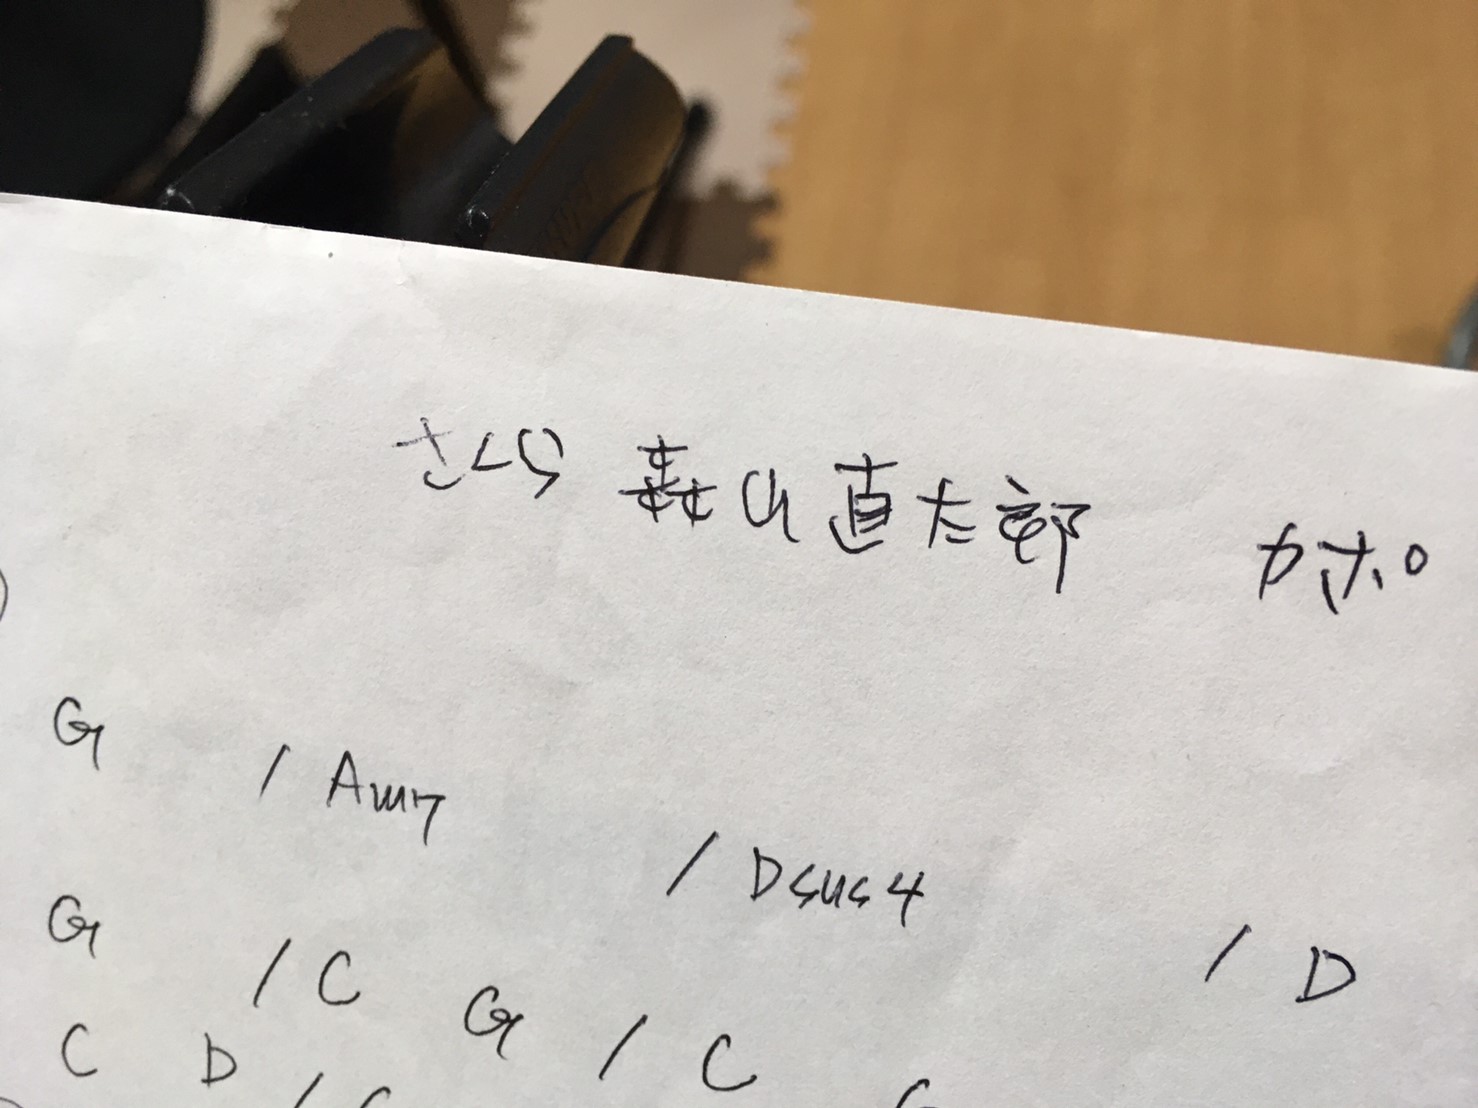 さくら 森山直太郎 カポ
G / Am7 / Dsus4 / D
G / C G / C
C D /